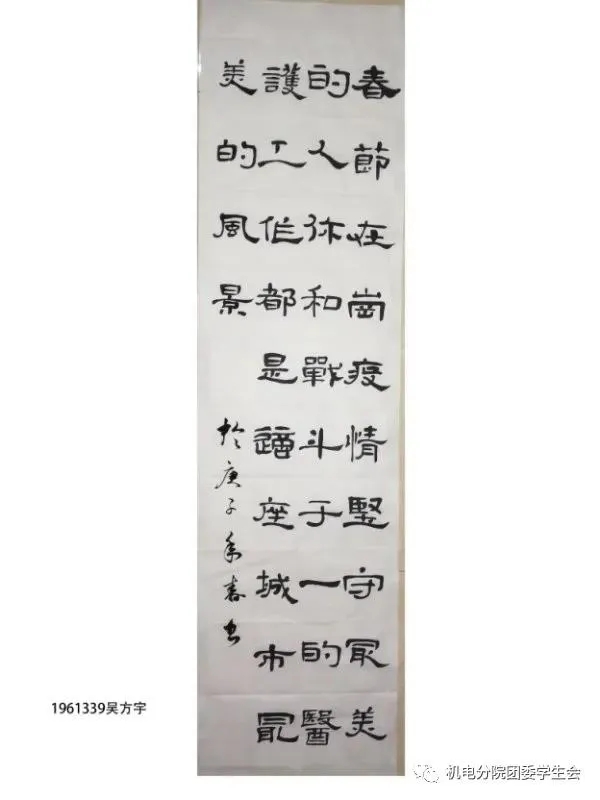 春節在崗疫情堅守最美
的人你和戰斗于一的醫
護工作都是這座城市最
美的風景
於庚子年春書
1961339吴方宇
机电分院团委学生会